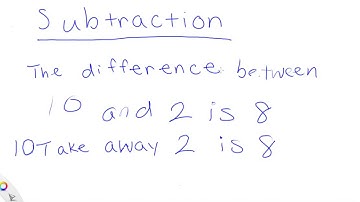 Subtraction
The difference between
10 and 2 is 8
10 Take away 2 is 8